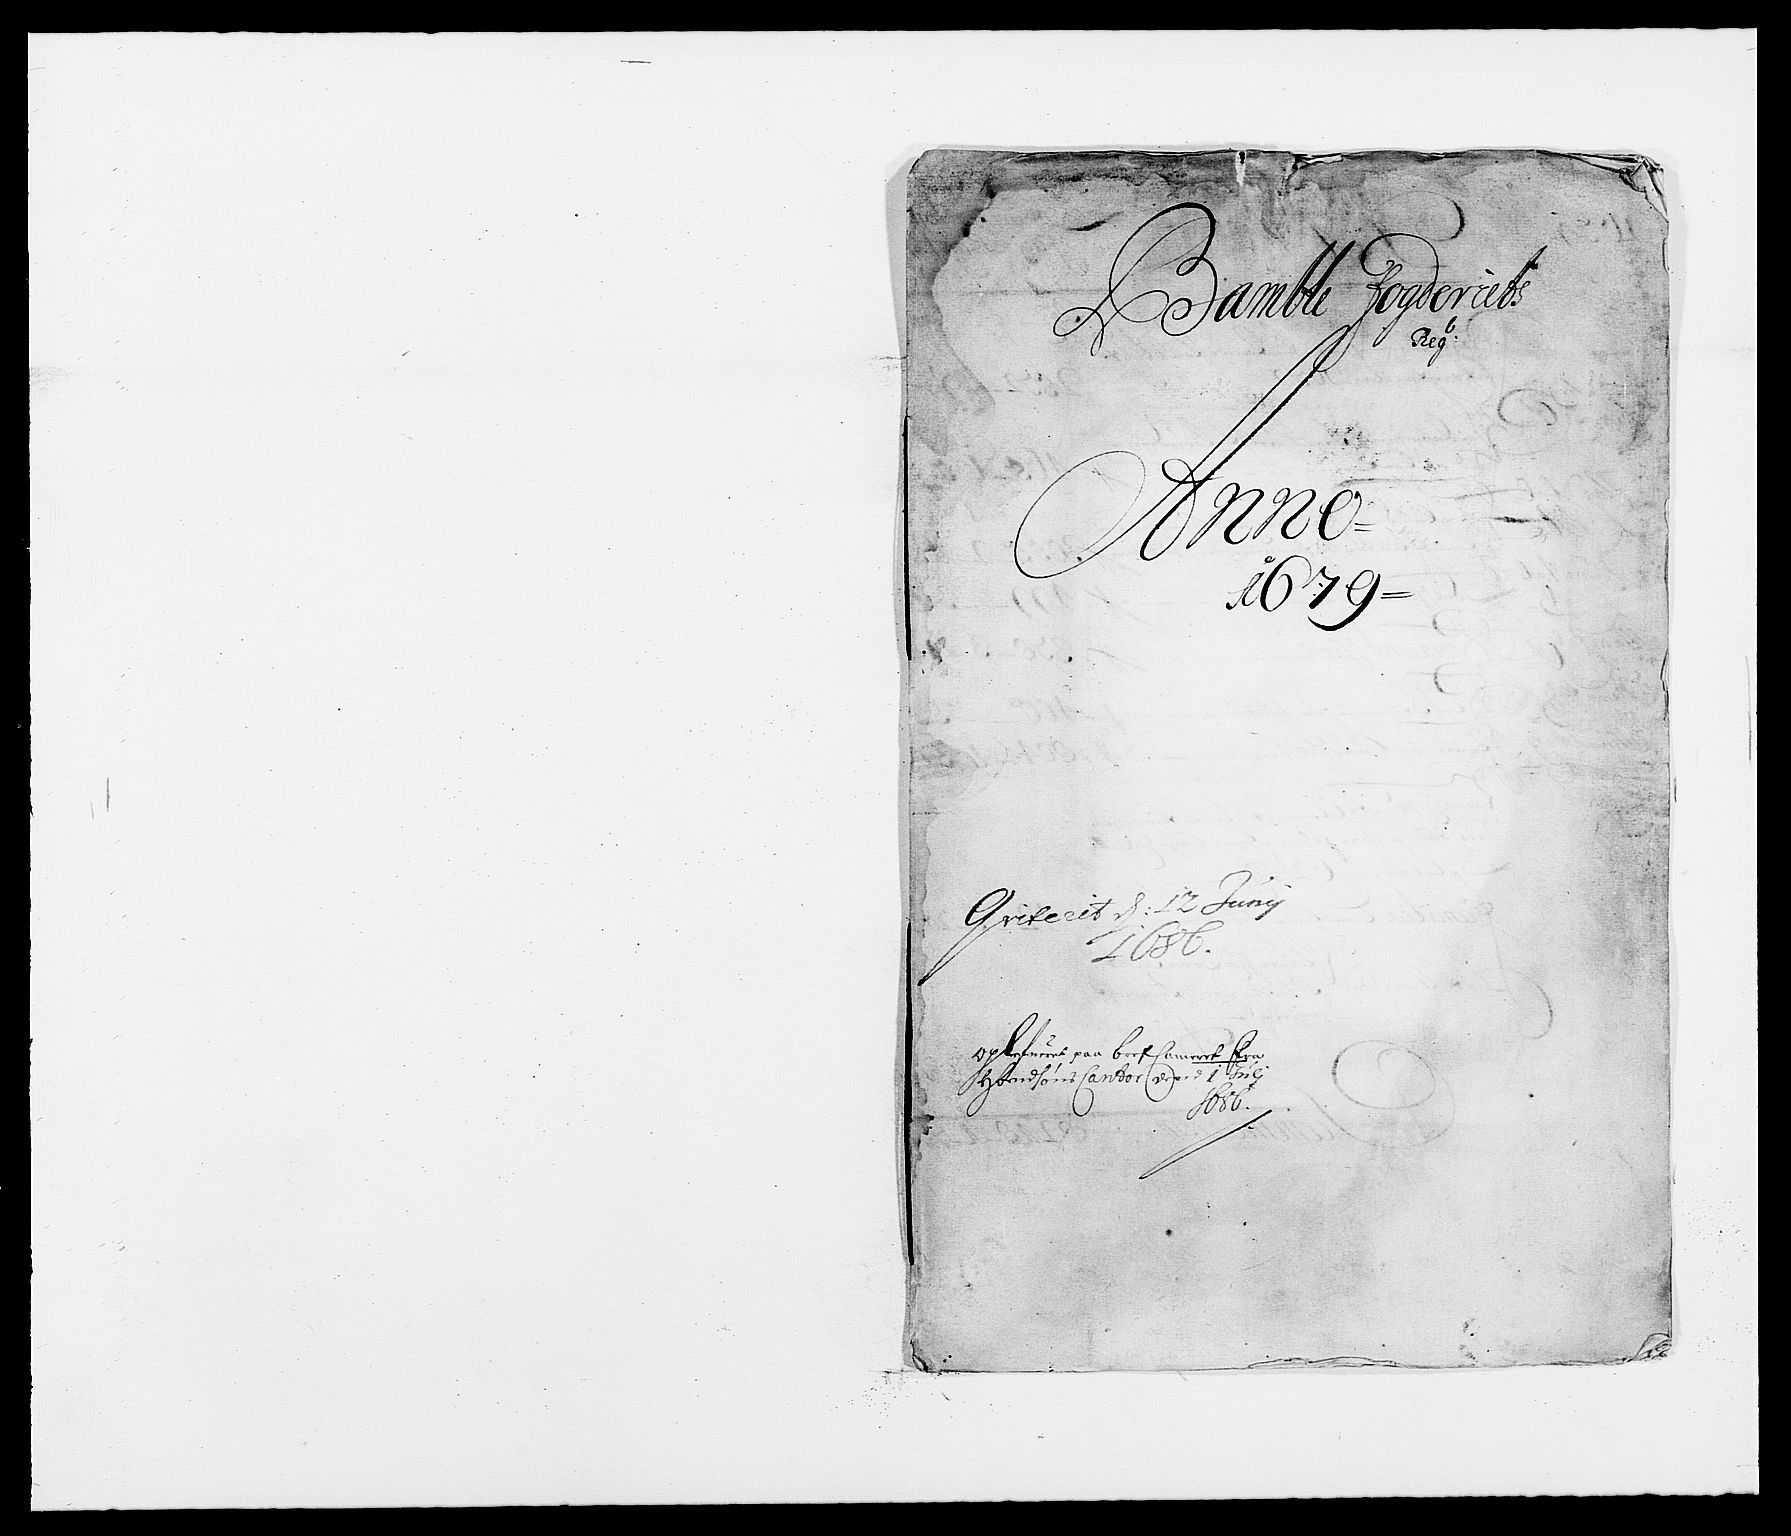 Bamble Fogderiets
Reg:
Anno
1679
Qviterit d: 12 Junij
1686.
paa bref Cameret fra
Cantor den 1 Julj
1686.